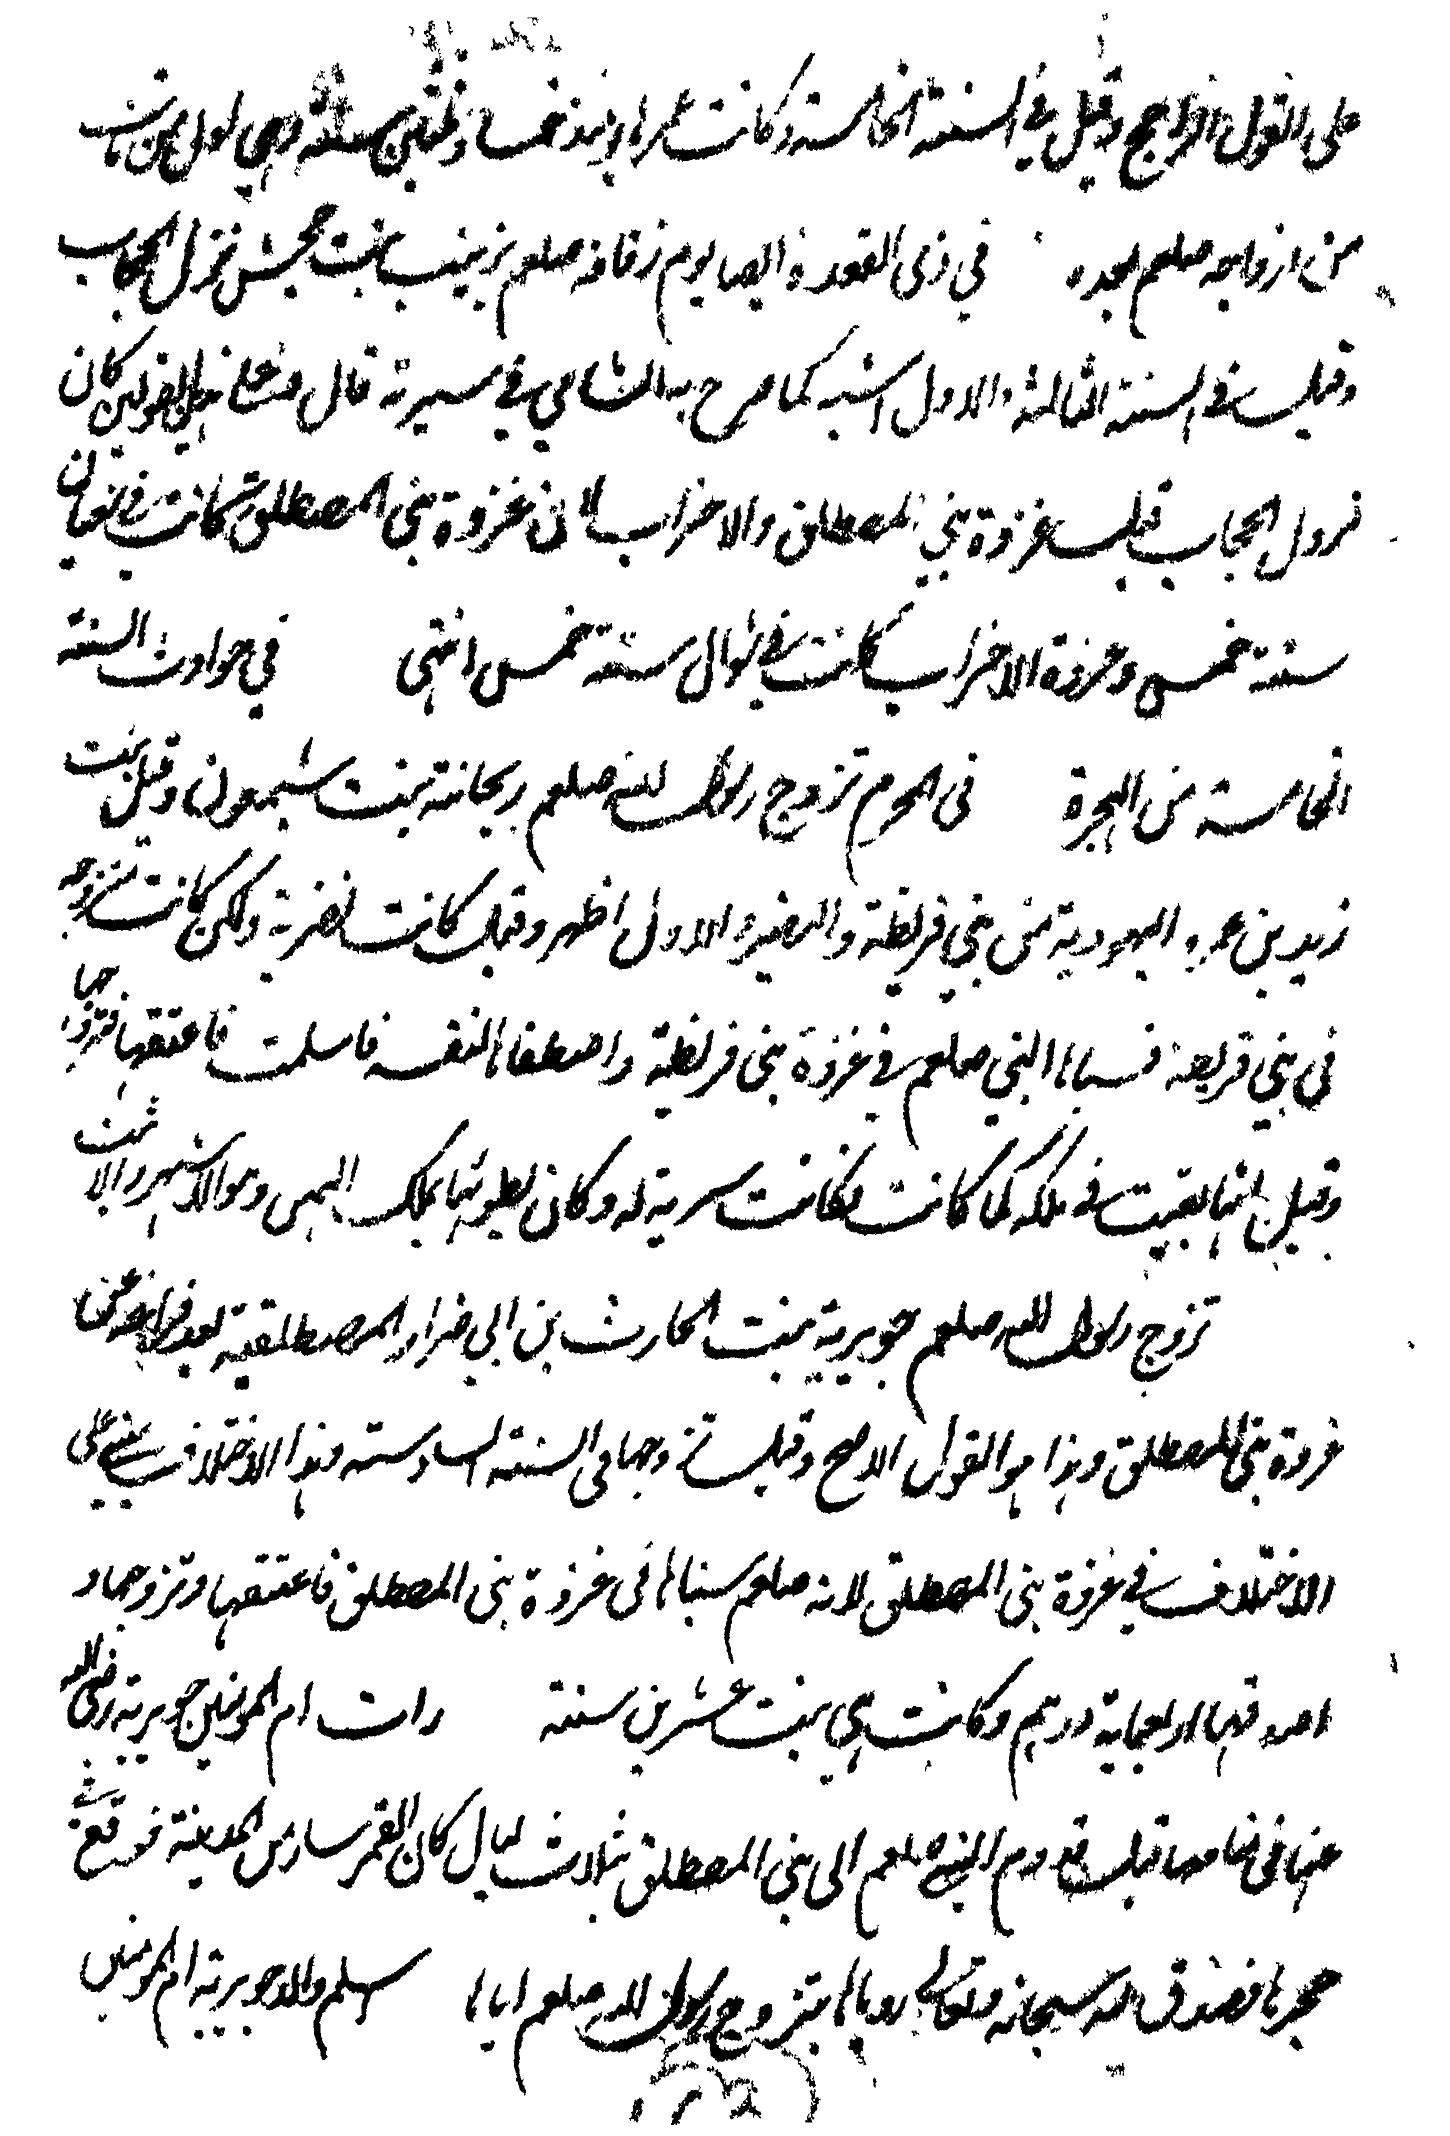 على القول الراجح وقيل في السنة الخامسة وكانت عمرها يومئذ خمسا وثلثين سنة وهي اول من مات
من ازواجه صلعم بعده في ذى القعدة ايضا يوم زفافه صلعم بزينب بنت جحش نزل الحجاب
وقيل في السنة الثالثة والاول اشبه كما صرح به الشامي في سيرته قال فعلى القولين كان
نزول الحجاب قبل غزوة بني المصطلق والاحزاب لان غزوة بني المصطلق كانت في شعبان
سنة خمس وغزوة الاحزاب كانت في شوال سنة خمس انتهى في حوادث السنة
الخامسة من الهجرة في المحرم تزوج رسول الله صلعم ريحانة بنت شمعون وقيل بنت
زيد بن عمرو اليهودية من بني قريظة والنضير والاول اظهر وقيل كانت نضرية ولكن كانت متزوجه
في بني قريظة فسباها النبي صلعم في غزوة بني قريظة واصطفاها لنفسه فاسلمت فاعتقها فتزوجها
وقيل انها بقيت في ملكه كما كانت فكانت سرية له وكان يطوئها بملك اليمين وهو الاشهر والاثبت
تزوج رسول الله صلعم جويرية بنت الحارث بن ابي ضرار المصطلقية بعد فراغه عن
غزوة بني المصطلق وهذا هو القول الاصح وقيل تزوجها في السنة السادسة وهذا الاختلاف مبني على
الاختلاف في غزوة بني المصطلق لانه صلعم سباها في غزوة بني المصطلق فاعتقها وتزوجها و
اصدقها اربعماية درهم وكانت هي بنت عشرين سنة رات ام المومنين جويرية رضي الله
عنها في منامها قبل قدوم النبي صلعم الى بني المصطلق بثلاث ليال كان القمر سار من المدينة فوقع في
حجرها فصدق الله سبحانه وتعالى روياها بتزوج رسول الله صلعم اياها اسلم والد جويرية ام المومنين